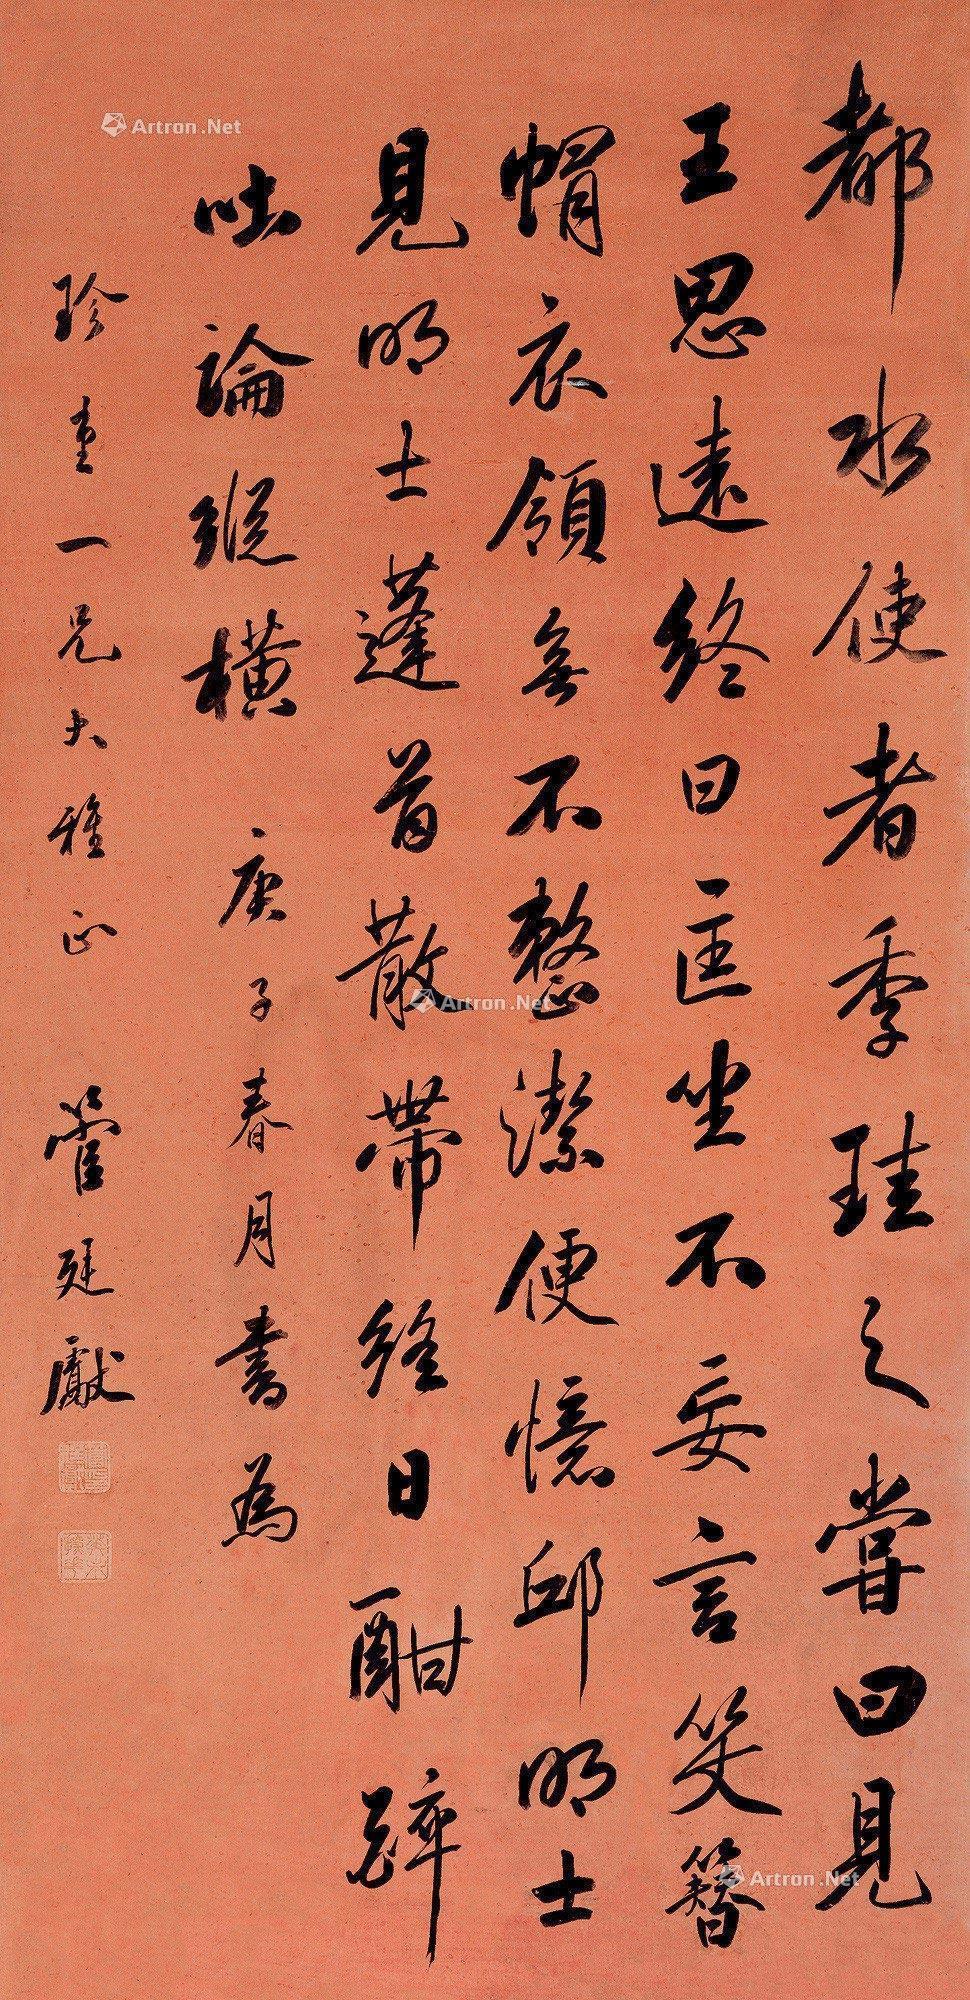 都水使者季珪之嘗曰見
王思遠終日匡坐不妄言笑簪
帽衣領無不整潔便憶邱明士
見明士蓬首散帶終日酣醉
吐論縱橫 庚子春月書為
珍重一兄大雅正 管廷獻
Artron.Net
Artron.Net
Artron.Net